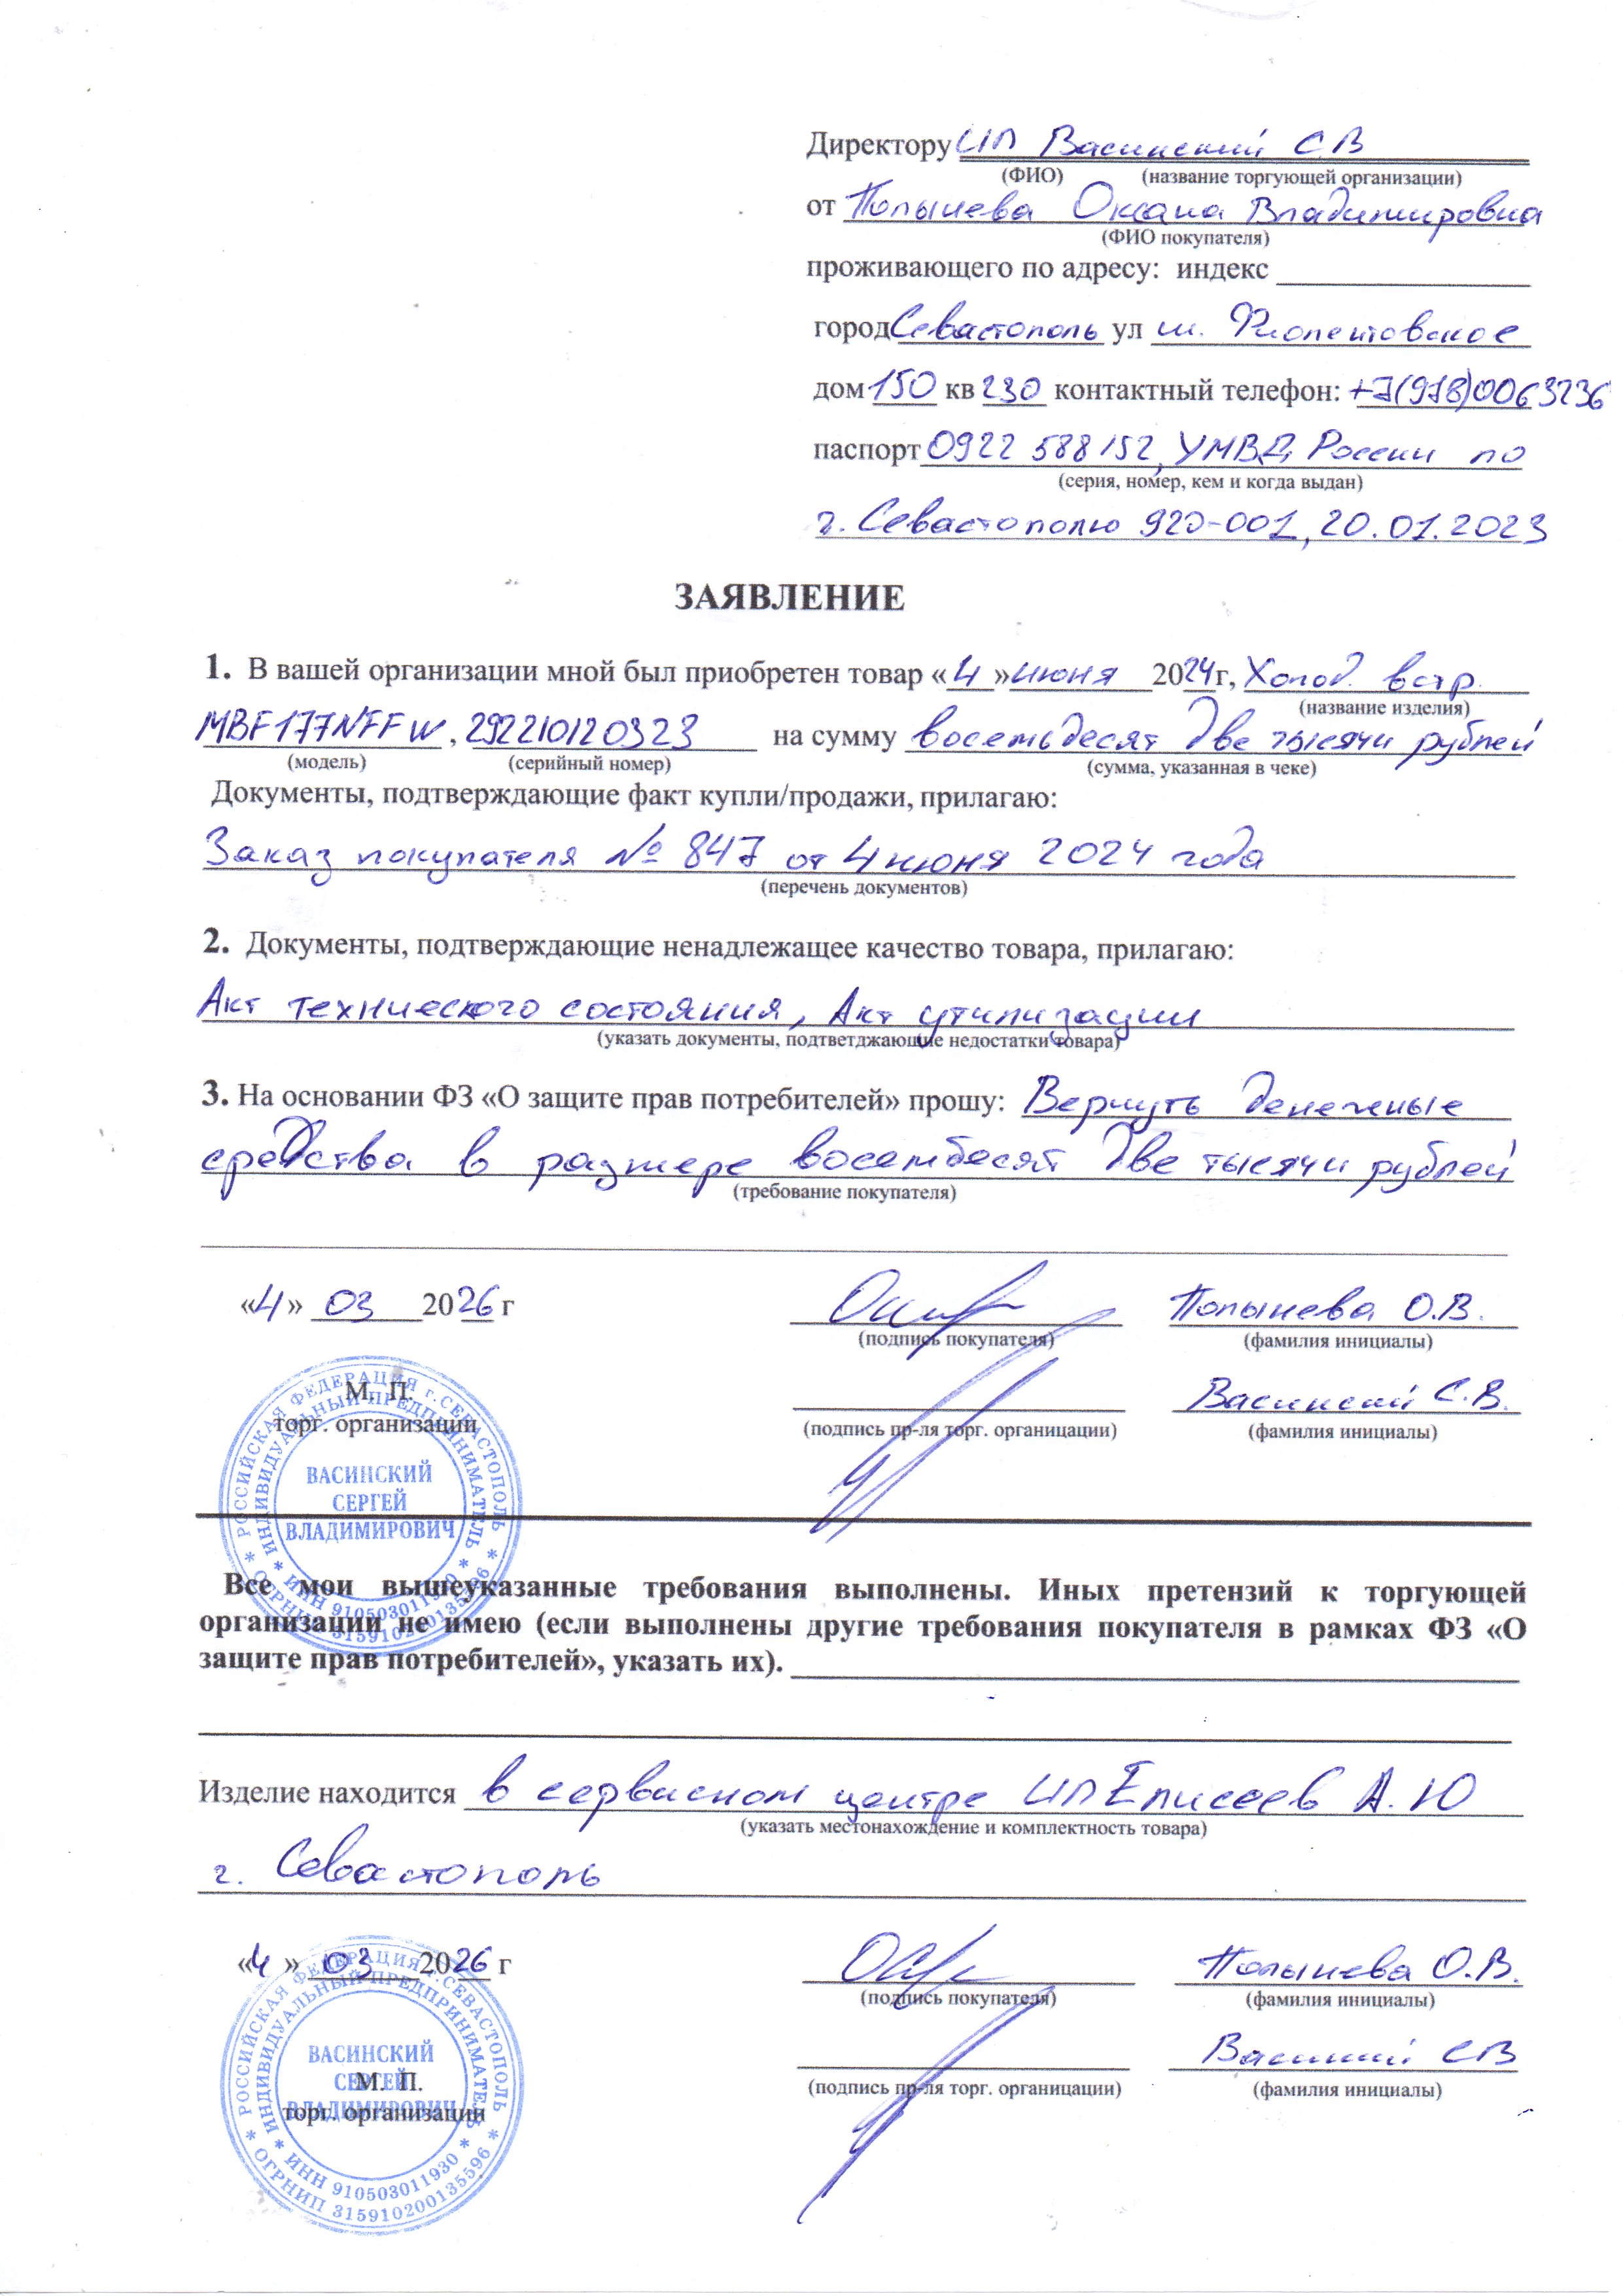 Директору ИП Васинский С В
(ФИО) (название торгующей организации)
от Полынева Оксана Владимировна
(ФИО покупателя)
проживающего по адресу: индекс
город Севастополь ул ш. Фиолентовское
дом 150 кв 230 контактный телефон: +7(978)0063236
паспорт 0922 588152, УМВД России по
(серия, номер, кем и когда выдан)
г. Севастополю 920-001, 20.01.2023
ЗАЯВЛЕНИЕ
1. В вашей организации мной был приобретен товар «4» июня 2024г, Холод. встр.
(название изделия)
MBF177NFFW, 292210120323 на сумму восемьдесят две тысячи рублей
(модель) (серийный номер) (сумма, указанная в чеке)
Документы, подтверждающие факт купли/продажи, прилагаю:
Заказ покупателя № 847 от 4 июня 2024 года
(перечень документов)
2. Документы, подтверждающие ненадлежащее качество товара, прилагаю:
Акт технического состояния, Акт утилизации
(указать документы, подтветджающие недостатки товара)
3. На основании ФЗ «О защите прав потребителей» прошу: Вернуть денежные
средства в размере восемьдесят две тысячи рублей
(требование покупателя)
«4» 03 2026 г Полынева О.В.
(подпись покупателя) (фамилия инициалы)
М. П. Васинский С.В.
торг. организации (подпись пр-ля торг. органицации) (фамилия инициалы)
РОССИЙСКАЯ ФЕДЕРАЦИЯ г.СЕВАСТОПОЛЬ
ИНДИВИДУАЛЬНЫЙ ПРЕДПРИНИМАТЕЛЬ
ВАСИНСКИЙ
СЕРГЕЙ
ВЛАДИМИРОВИЧ
ИНН 910503011930
ОГРНИП 315910200135596
Все мои вышеуказанные требования выполнены. Иных претензий к торгующей
организации не имею (если выполнены другие требования покупателя в рамках ФЗ «О
защите прав потребителей», указать их).
Изделие находится в сервисном центре ИП Елисеев А.Ю
(указать местонахождение и комплектность товара)
г. Севастополь
«4» 03 2026 г Полынева О.В.
(подпись покупателя) (фамилия инициалы)
Васинский СВ
(подпись пр-ля торг. органицации) (фамилия инициалы)
РОССИЙСКАЯ ФЕДЕРАЦИЯ г.СЕВАСТОПОЛЬ
ИНДИВИДУАЛЬНЫЙ ПРЕДПРИНИМАТЕЛЬ
ВАСИНСКИЙ
СЕРГЕЙ
М. П.
ВЛАДИМИРОВИЧ
торг. организации
ИНН 910503011930
ОГРНИП 315910200135596